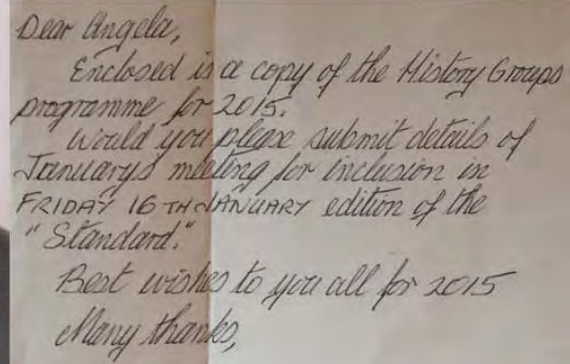 Dear Angela,
Enclosed is a copy of the History Groups
programme for 2015.
Would you please submit details of
January's meeting for inclusion in
FRIDAY 16TH JANUARY edition of the
"Standard."
Best wishes to you all for 2015
Many thanks,